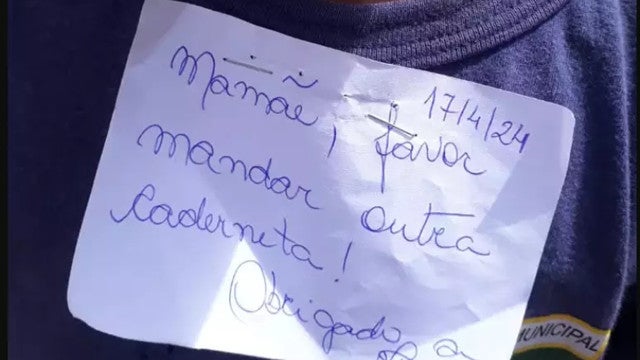 17/4/24
Mamãe, favor
mandar outra
caderneta!
Obrigado
MUNICIPAL